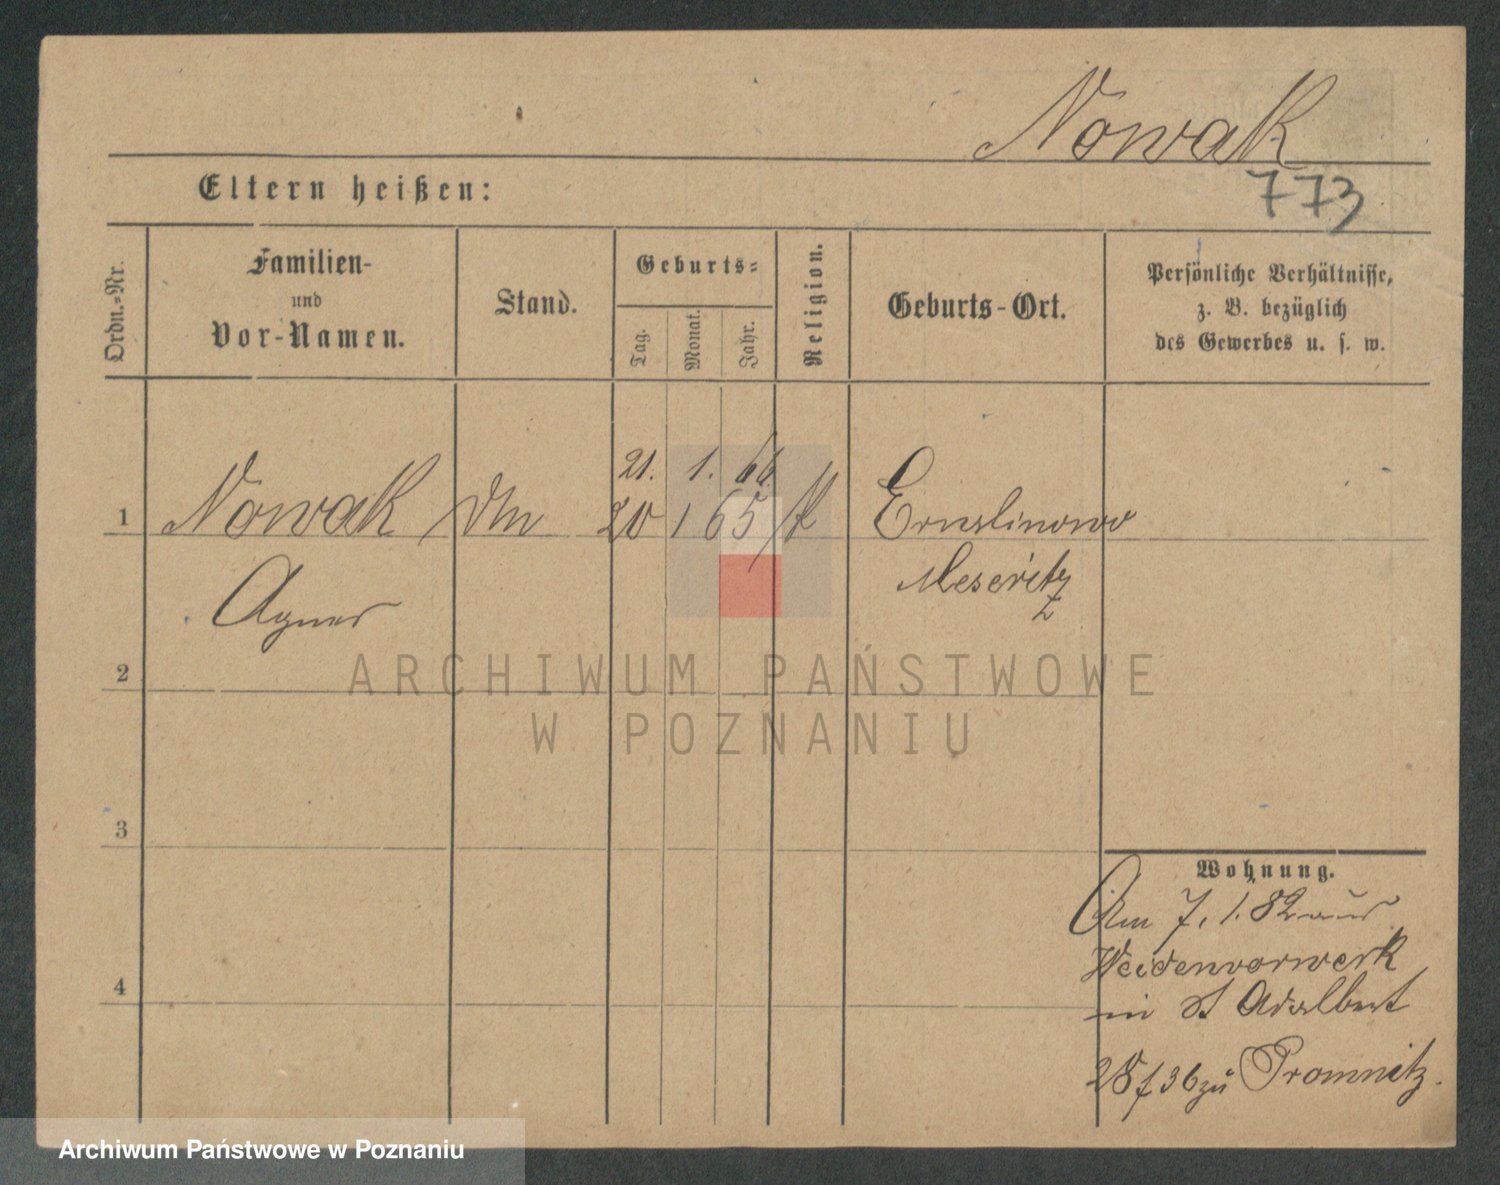 Nowak
773
Eltern heißen:
Ordn.-Nr.
Familien-
und
Vor-Namen.
Stand.
Geburts-
Tag.
Monat.
Jahr.
Religion.
Geburts-Ort.
Persönliche Verhältnisse,
z. B. bezüglich
des Gewerbes u. s. w.
21. 1. 66.
1 Nowak 20 1 65 Ernslinowo
Agnes Meseritz
2
3
4
Wohnung.
Am 7. 1. 82 aus
Weidenvorwerk
in St Adalbert
28 f 36 zu Promnitz.
ARCHIWUM PAŃSTWOWE
W POZNANIU
Archiwum Państwowe w Poznaniu